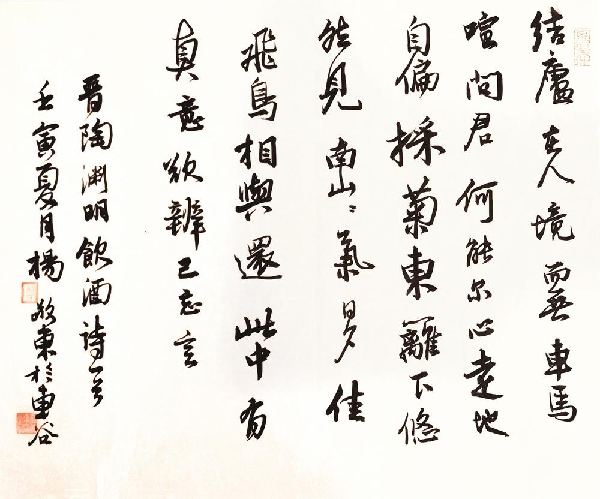 結廬在人境而無車馬
喧問君何能尔心遠地
自偏採菊東籬下悠
然見南山〻氣日夕佳
飛鳥相與還此中有
真意欲辨已忘言
晉陶渊明飲酒詩一首
壬寅夏月楊東於谷